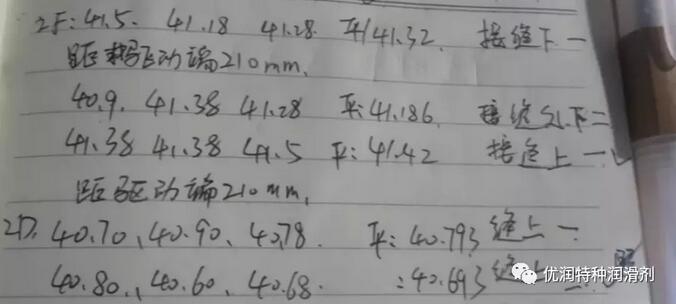 2F: 41.5. 41.18 41.28 平/41.32. 接缝下一
距驱动端210mm.
40.9. 41.38 41.28 平: 41.186. 接缝下二
41.38 41.38 41.5 平: 41.42 接缝上一
距驱动端210mm,
2D. 40.70、40.90、40.78. 平: 40.793 缝上一
40.80.、40.60、40.68. : 40.693 缝上二
优润特种润滑剂